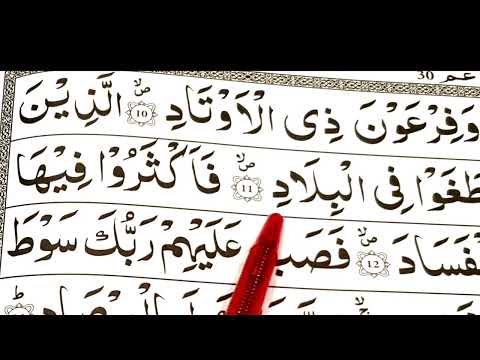 عم 30
وَفِرْعَوْنَ ذِى الْاَوْتَادِ ۙ ۪ۙ 10 الَّذِيْنَ
طَغَوْا فِى الْبِلَادِ ۙ ۪ۙ 11 فَاَكْثَرُوْا فِيْهَا
الْفَسَادَ ۙ ۪ۙ 12 فَصَبَّ عَلَيْهِمْ رَبُّكَ سَوْطَ